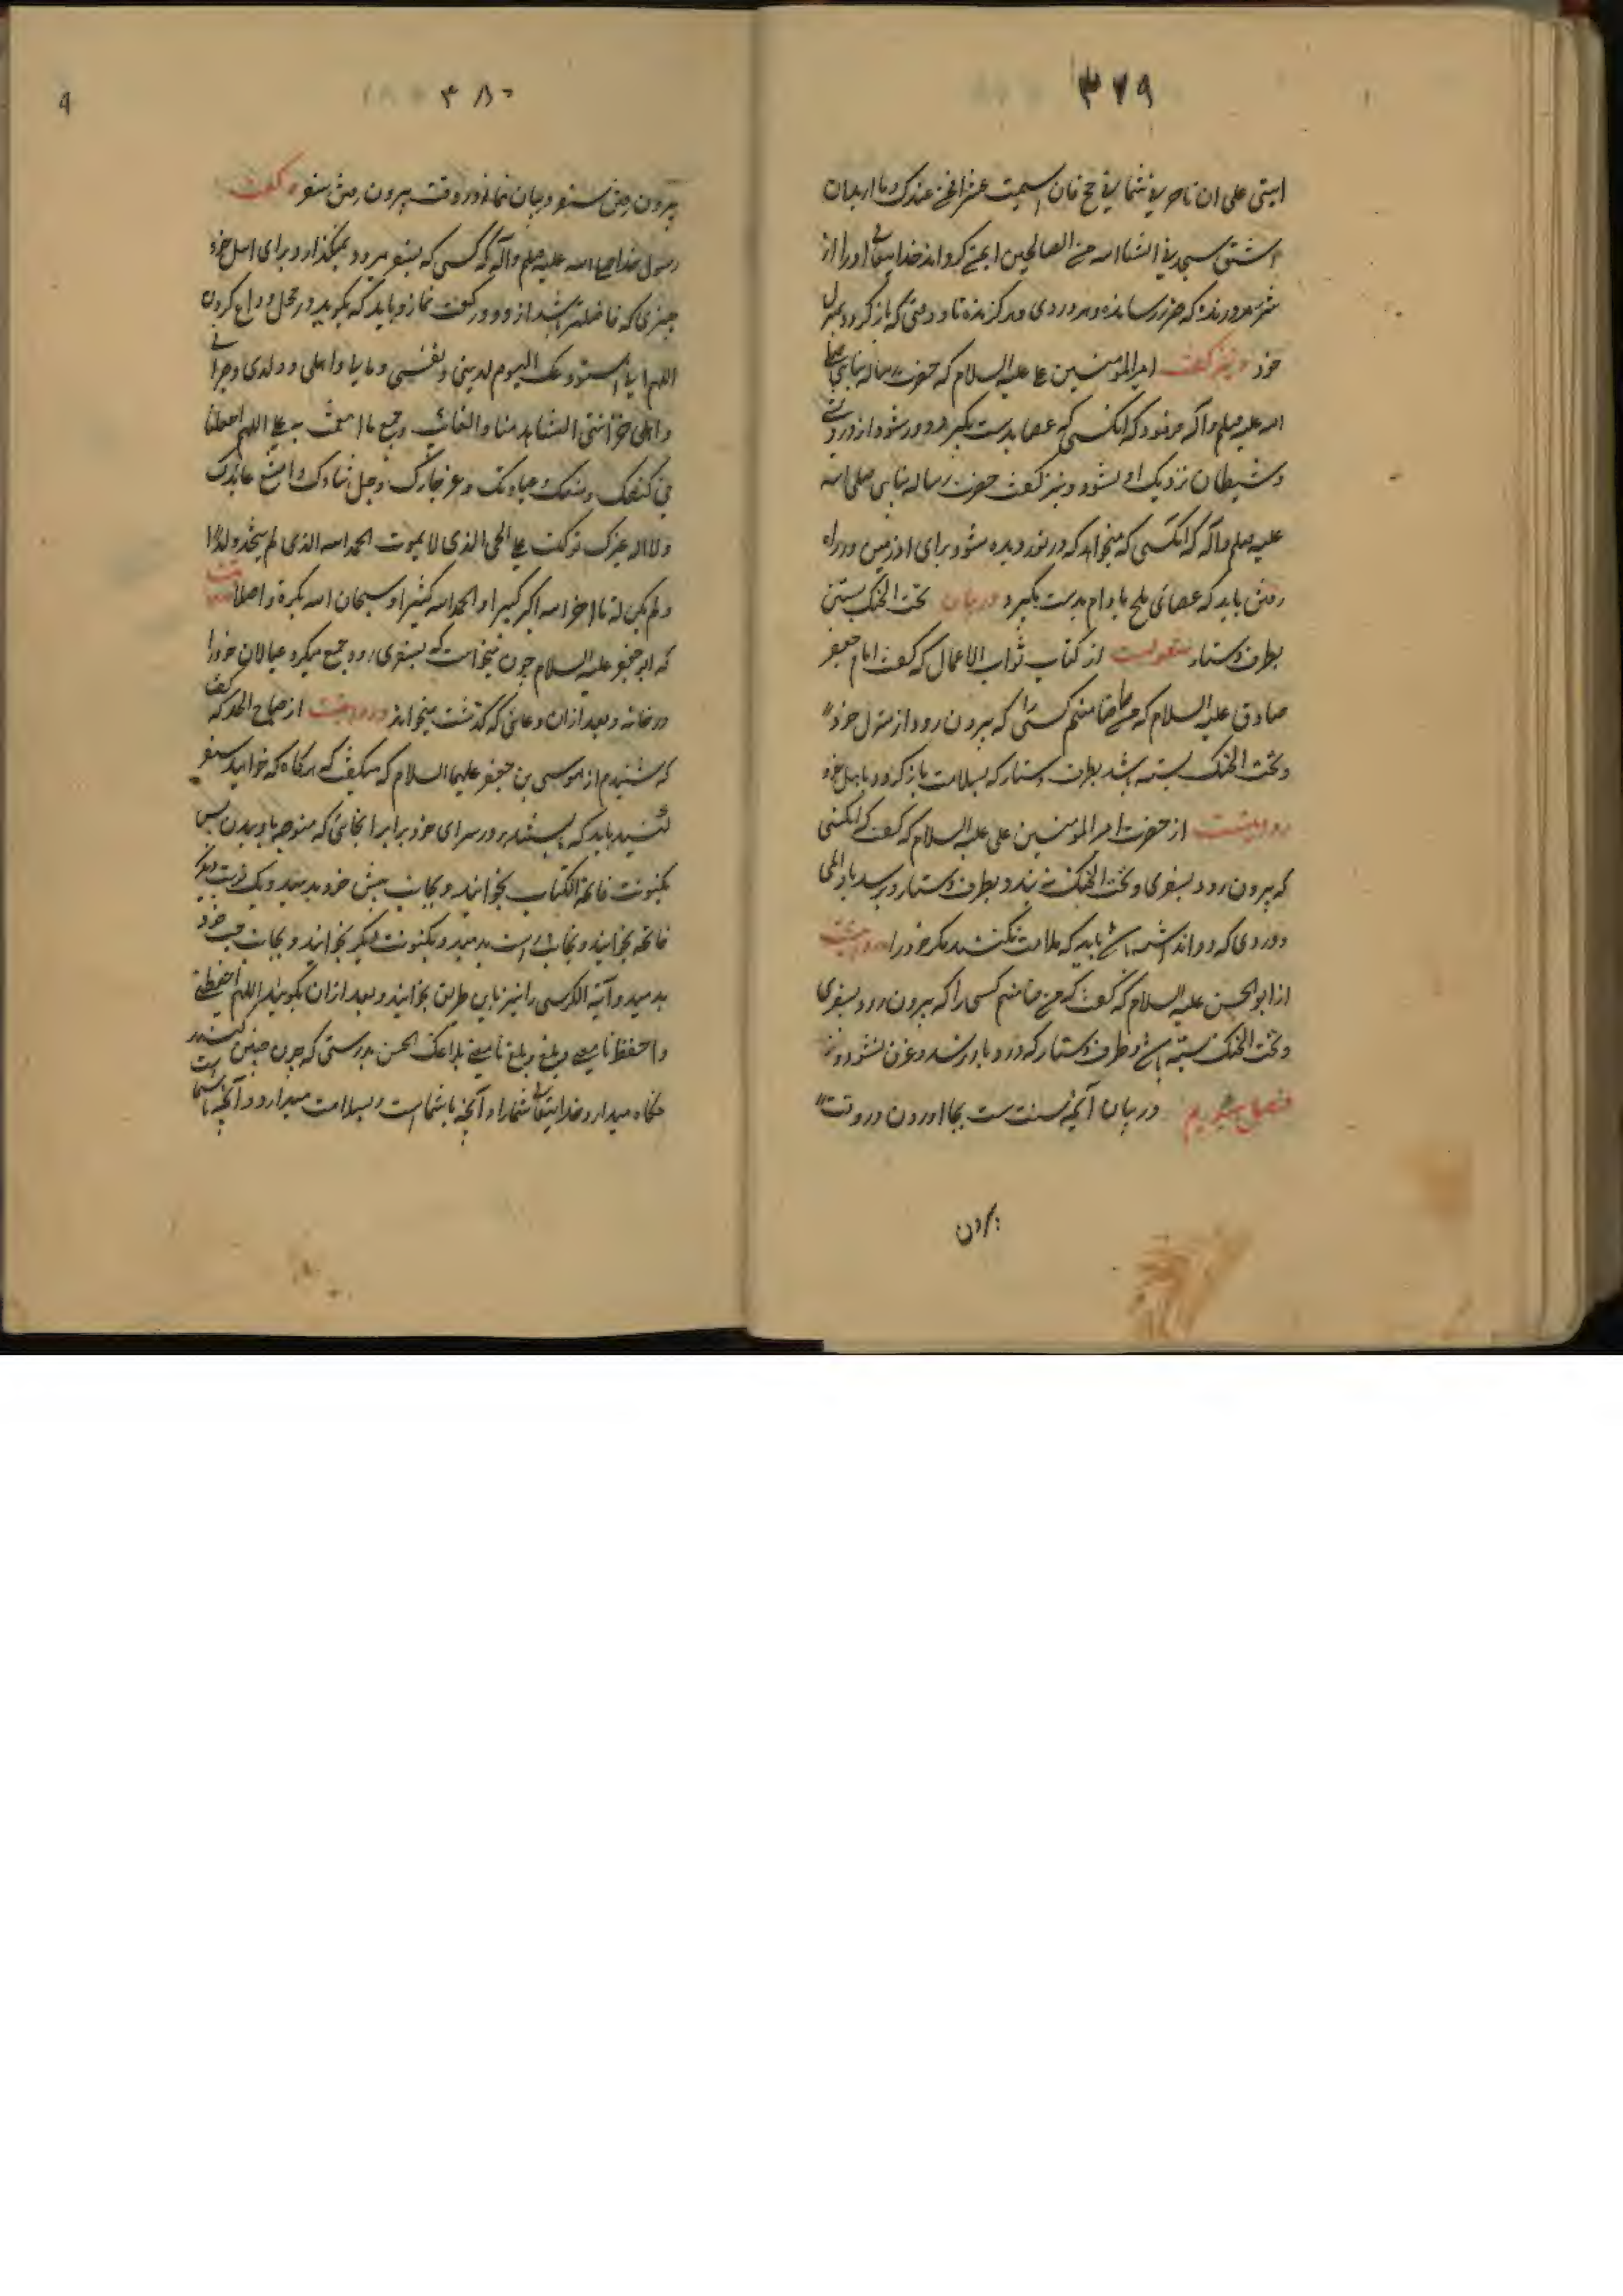 ۳۷۹
ابنتی علی ان تاجرنی ثمانی حجج فان اتممت عشرا فمن عندک وما ارید ان
اشق ستجدنی انشاالله من الصالحین ایمن کرداند خدایتعالی او را از
شر هر درنده که ضرر رساننده و هر دزدی و هر گزنده تا و وقتی که بازگردد بمنزل
خود و نیز گفت امیرالمومنین علی علیه السلام که حضرت رساله پناهی صلی
الله علیه وسلم و آله فرمود که انکسی که عصا بدست بگیرد دور شود از درویشی
و شیطان نزدیک او نشود و نیز گفت حضرت رساله پناهی صلی الله
علیه وسلم و آله که انکسی که میخواهد که در نوردیده شود برای او زمین در راه
رفتن باید که عصای تلخ بادام بدست بگیرد در بیان تحت الحنک بستن
بطرف دستار منقولست از کتاب ثواب الاعمال که گفت امام جعفر
صادق علیه السلام که من ضامنم کسی را که بیرون رود از منزل خود
و تحت الحنک بسته باشد بطرف دستار که بسلامت بازگردد باهل خود
روایتست از حضرت امیرالمومنین علی علیه السلام که گفت که انکسی
که بیرون رود بسفری و تحت الحنک نه بندد بطرف دستار و برسد باو المی
و دردی که دوا نداشته باشد باید که ملامت نکند مگر خود را روایتست
از ابوالحسن علیه السلام که گفت که من ضامنم کسی را که بیرون رود بسفری
و تحت الحنک بسته باشد بطرف دستار که دزد باو نرسد و غرق نشود و نیز
فصل سیوم در بیان آنچه سنت ست بجا اوردن در وقت
بیرون
۳۸۰
بیرون رفتن سفر و بیان نماز در وقت بیرون رفتن سفر گفت
رسول خدا صلی الله علیه وسلم و آله که کسی که بسفر میرود نمیگذارد برای اهل خود
چیزی که فاضلتر باشد از دو رکعت نماز و باید که بگوید در محل وداع کردن
اللهم انی استودعک الیوم لدینی و نفسی و مالی و اهلی و ولدی و جیرانی
و اهل حزانتی الشاهد منا و الغائب و جمیع ما انعمت به علی اللهم اجعلنا
فی کنفک و منعک و عیاذتک و عز جارک و جل ثناؤک و امتنع عائذک
ولا اله غیرک توکلت علی الحی الذی لا یموت الحمد لله الذی لم یتخذ ولدا
و لم یکن له تا اخر الله اکبر کبیرا و الحمدلله کثیرا و سبحان الله بکرة و اصیلا
که ابوجعفر علیه السلام چون میخواست که بسفری رود جمع میکرد عیالان خود را
در خانه و بعد از ان دعائی که گذشت میخواند و روایتست از صباح الحد که گفت
که شنیدم از موسی بن جعفر علیهما السلام که میگفت که هرگاه که خواهید سفر
کنید باید که بایستید بر در سرای خود برابر انجائی که متوجه باو بدن پس
یکنوبت فاتحة الکتاب بخوانید و بجانب پیش خود بدمید و یک نوبت دیگر
فاتحه بخوانید و بجانب راست بدمید و یکنوبت دیگر بخوانید و بجانب چپ خود
بدمید و آیة الکرسی را نیز باین طریق بخوانید و بعد از ان بگویید اللهم احفظنی
و احفظ ما معی و بلغنی و بلغ ما معی بلاغک الحسن بدرستی که چون چنین کنید
نگاه میدارد خدایتعالی شما را و آنچه با شماست و بسلامت میدارد و آنچه با شماست